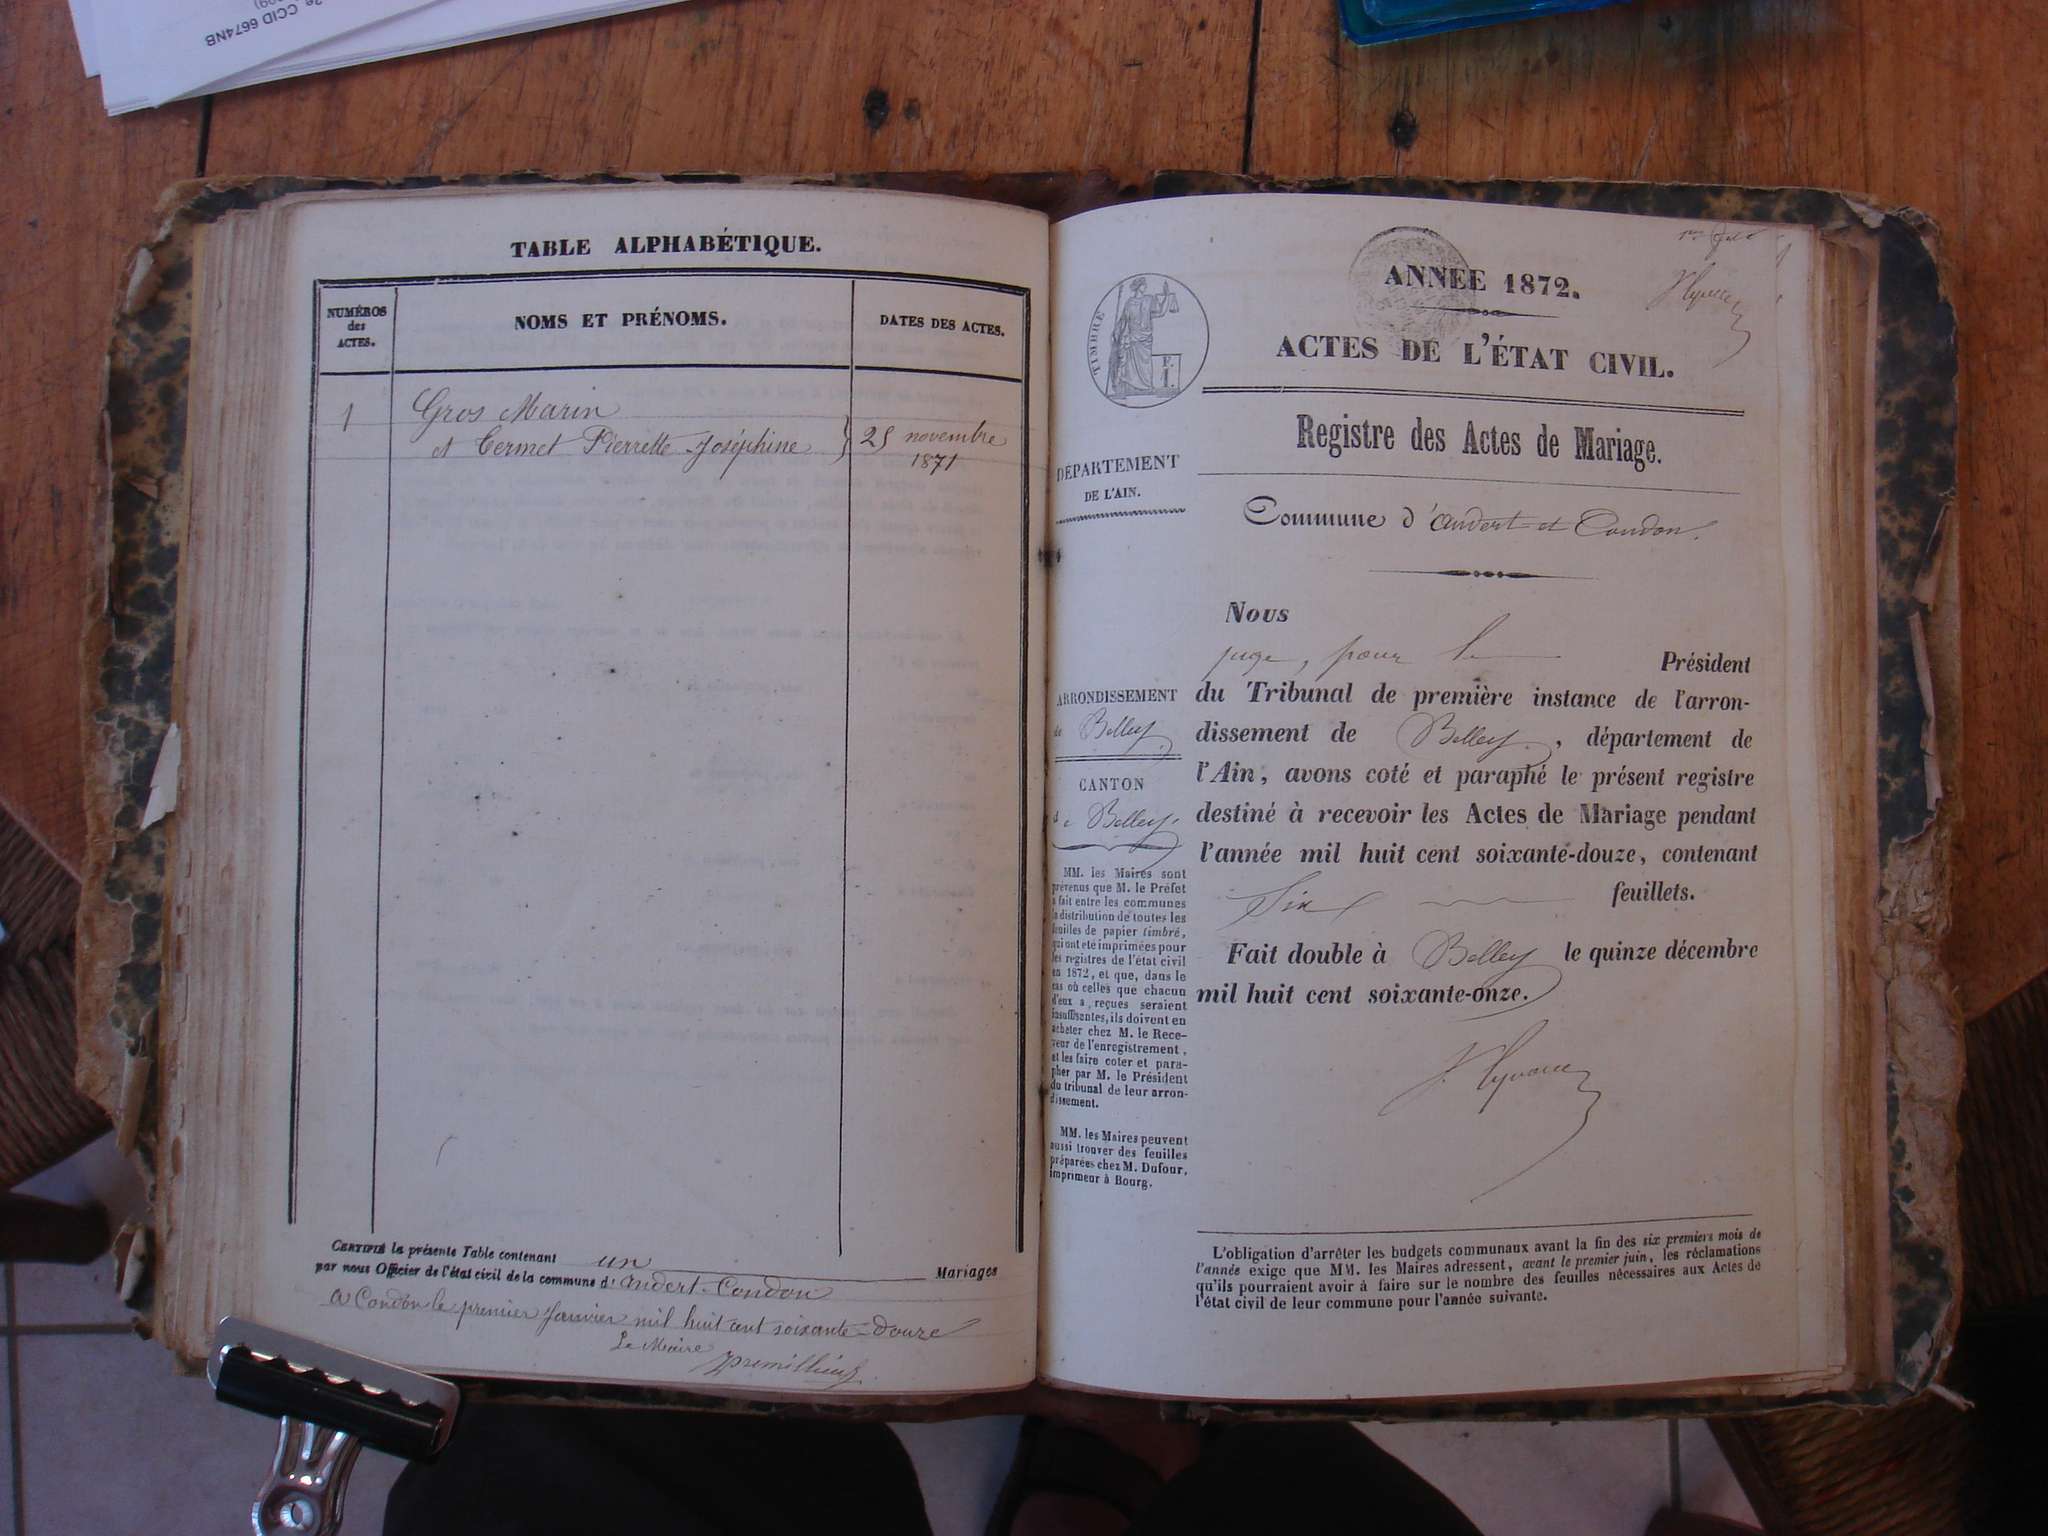 2e, CCID 6674NB
TABLE ALPHABÉTIQUE.
NUMÉROS
des
ACTES.
NOMS ET PRÉNOMS.
DATES DES ACTES.
1
Gros Marin
et Cermet Pierrette Joséphine
25 novembre
1871
CERTIFIÉ la présente Table contenant un Mariages
par nous Officier de l'état civil de la commune d'andert-Condon
a Condon le premier Janvier mil huit cent soixante-douze
Le Maire
TIMBRE
F.
1.
DÉPARTEMENT
DE L'AIN.
ARRONDISSEMENT
de Belley
CANTON
de Belley
MM. les Maires sont
prévenus que M. le Préfet
a fait entre les communes
la distribution de toutes les
feuilles de papier timbré,
qui ont été imprimées pour
les registres de l'état civil
en 1872, et que, dans le
cas où celles que chacun
d'eux a reçues seraient
insuffisantes, ils doivent en
acheter chez M. le Rece-
veur de l'enregistrement,
et les faire coter et para-
pher par M. le Président
du tribunal de leur arron-
dissement.
MM. les Maires peuvent
aussi trouver des feuilles
préparées chez M. Dufour,
imprimeur à Bourg.
ANNÉE 1872.
ACTES DE L'ÉTAT CIVIL.
Registre des Actes de Mariage.
Commune d'andert-et Condon.
Nous
juge, pour le Président
du Tribunal de première instance de l'arron-
dissement de Belley, département de
l'Ain, avons coté et paraphé le présent registre
destiné à recevoir les Actes de Mariage pendant
l'année mil huit cent soixante-douze, contenant
Six feuillets.
Fait double à Belley le quinze décembre
mil huit cent soixante-onze.
L'obligation d'arrêter les budgets communaux avant la fin des six premiers mois de
l'année exige que MM. les Maires adressent, avant le premier juin, les réclamations
qu'ils pourraient avoir à faire sur le nombre des feuilles nécessaires aux Actes de
l'état civil de leur commune pour l'année suivante.